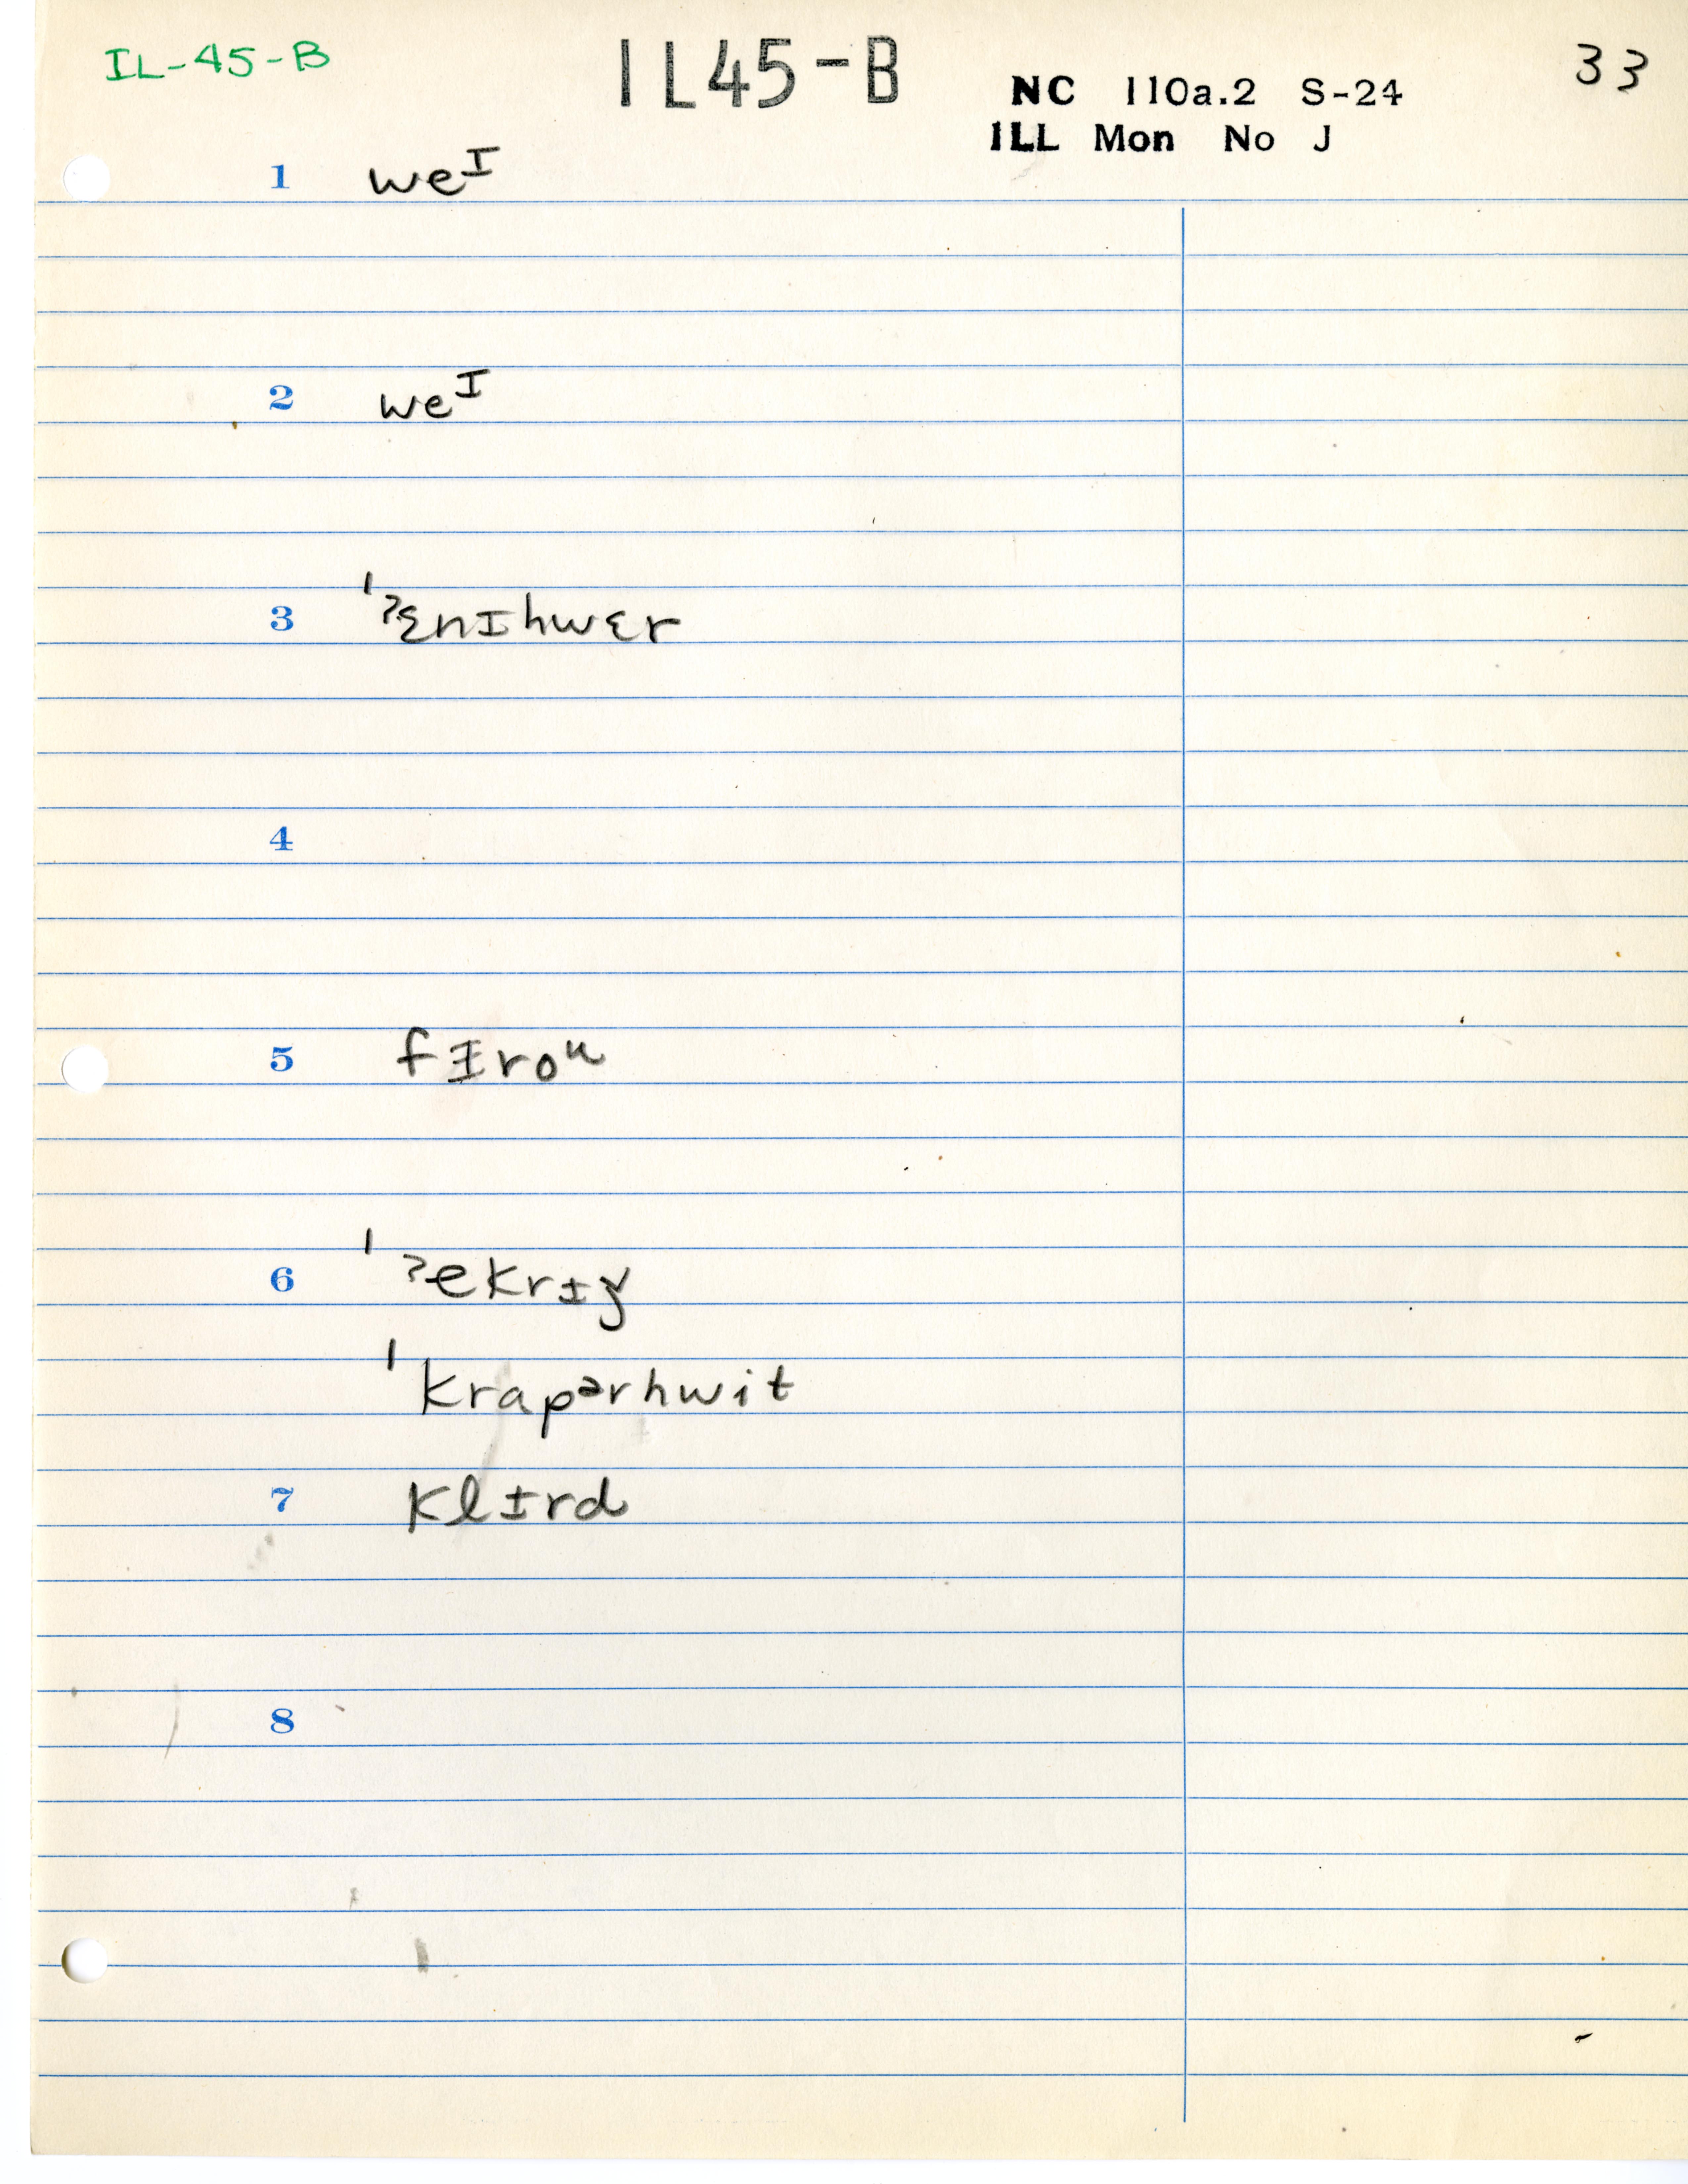 IL-45-B IL45-B NC 110a.2 S-24 33
ILL Mon No J
1 weᴵ
2 weᴵ
3 ˈˀɛnɪhwɛr
4
5 fɪroᵘ
6 ˈˀekrɪʒ
ˈkrapᵊrhwit
7 klɪrd
8